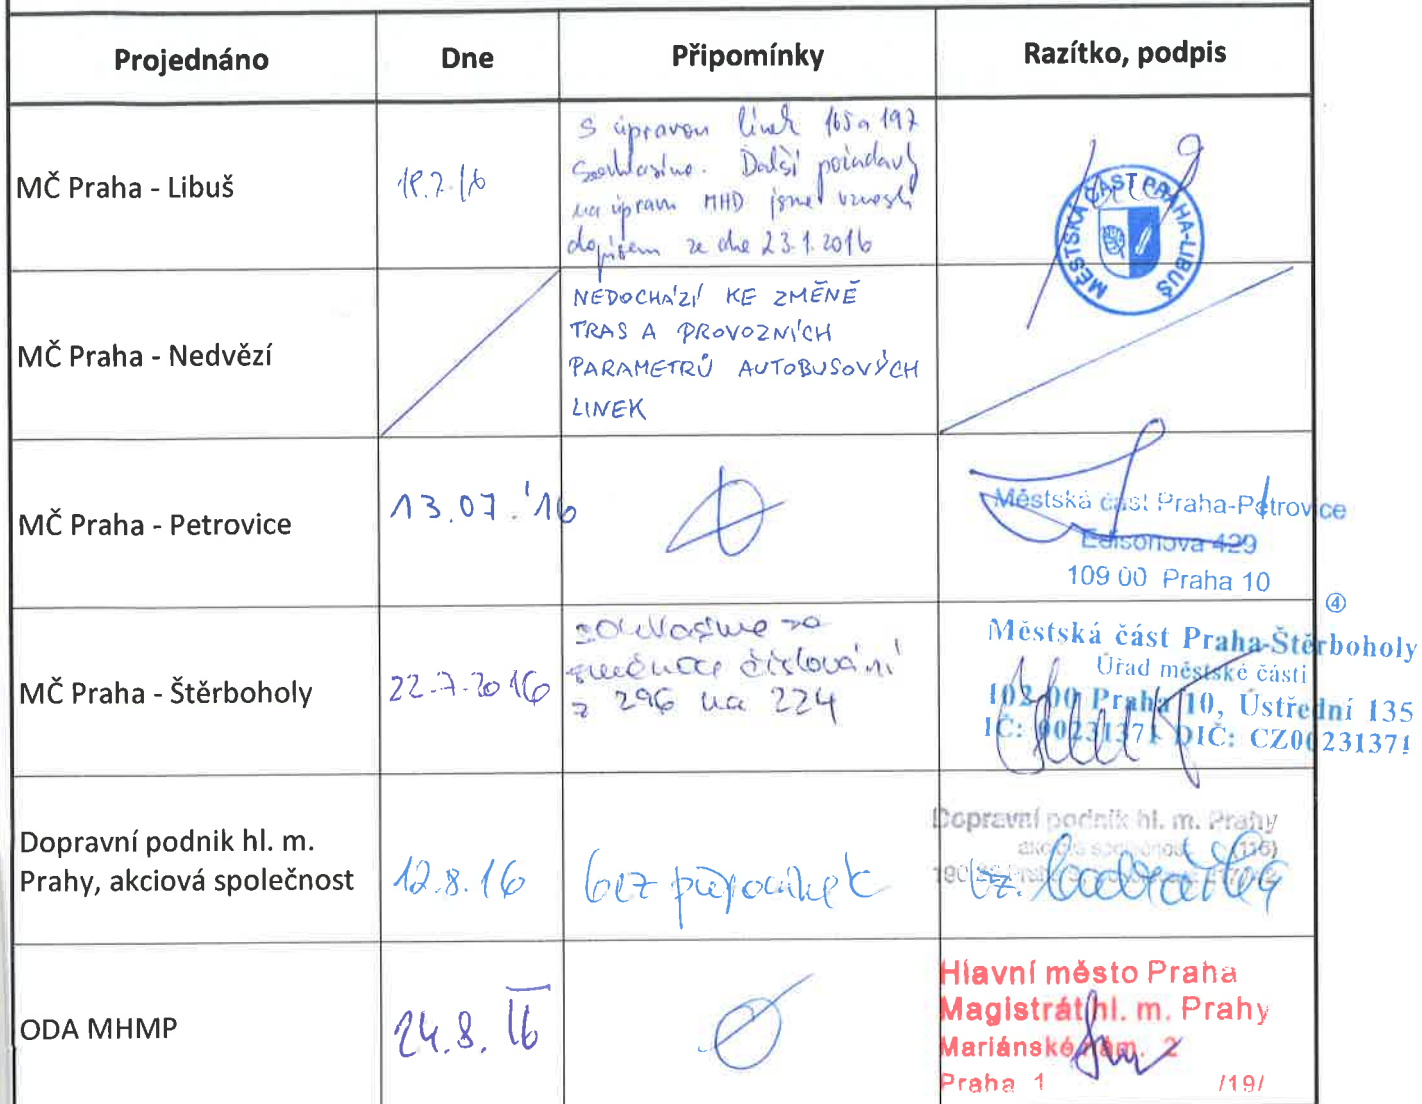 Projednáno Dne Připomínky Razítko, podpis
MČ Praha - Libuš
S úpravou linek 165 a 197
souhlasíme. Další požadavky
na úpravu MHD jsme vznesli
dopisem ze dne 23.1.2016
MĚSTSKÁ ČÁST PRAHA-LIBUŠ
MČ Praha - Nedvězí
NEDOCHÁZÍ KE ZMĚNĚ
TRAS A PROVOZNÍCH
PARAMETRŮ AUTOBUSOVÝCH
LINEK
MČ Praha - Petrovice
13.07.'16
Městská část Praha-Petrovice
Edisonova 429
109 00 Praha 10
MČ Praha - Štěrboholy
22.7.2016
souhlasíme se
číslování
z 296 na 224
④
Městská část Praha-Štěrboholy
Úřad městské části
102 00 Praha 10, Ústřední 135
IČ: 00231371 DIČ: CZ00231371
Dopravní podnik hl. m.
Prahy, akciová společnost
12.8.16
bez připomínek
Dopravní podnik hl. m. Prahy
akciová společnost (116)
ODA MHMP
24.8.16
Hlavní město Praha
Magistrát hl. m. Prahy
Mariánské nám. 2
Praha 1 /19/